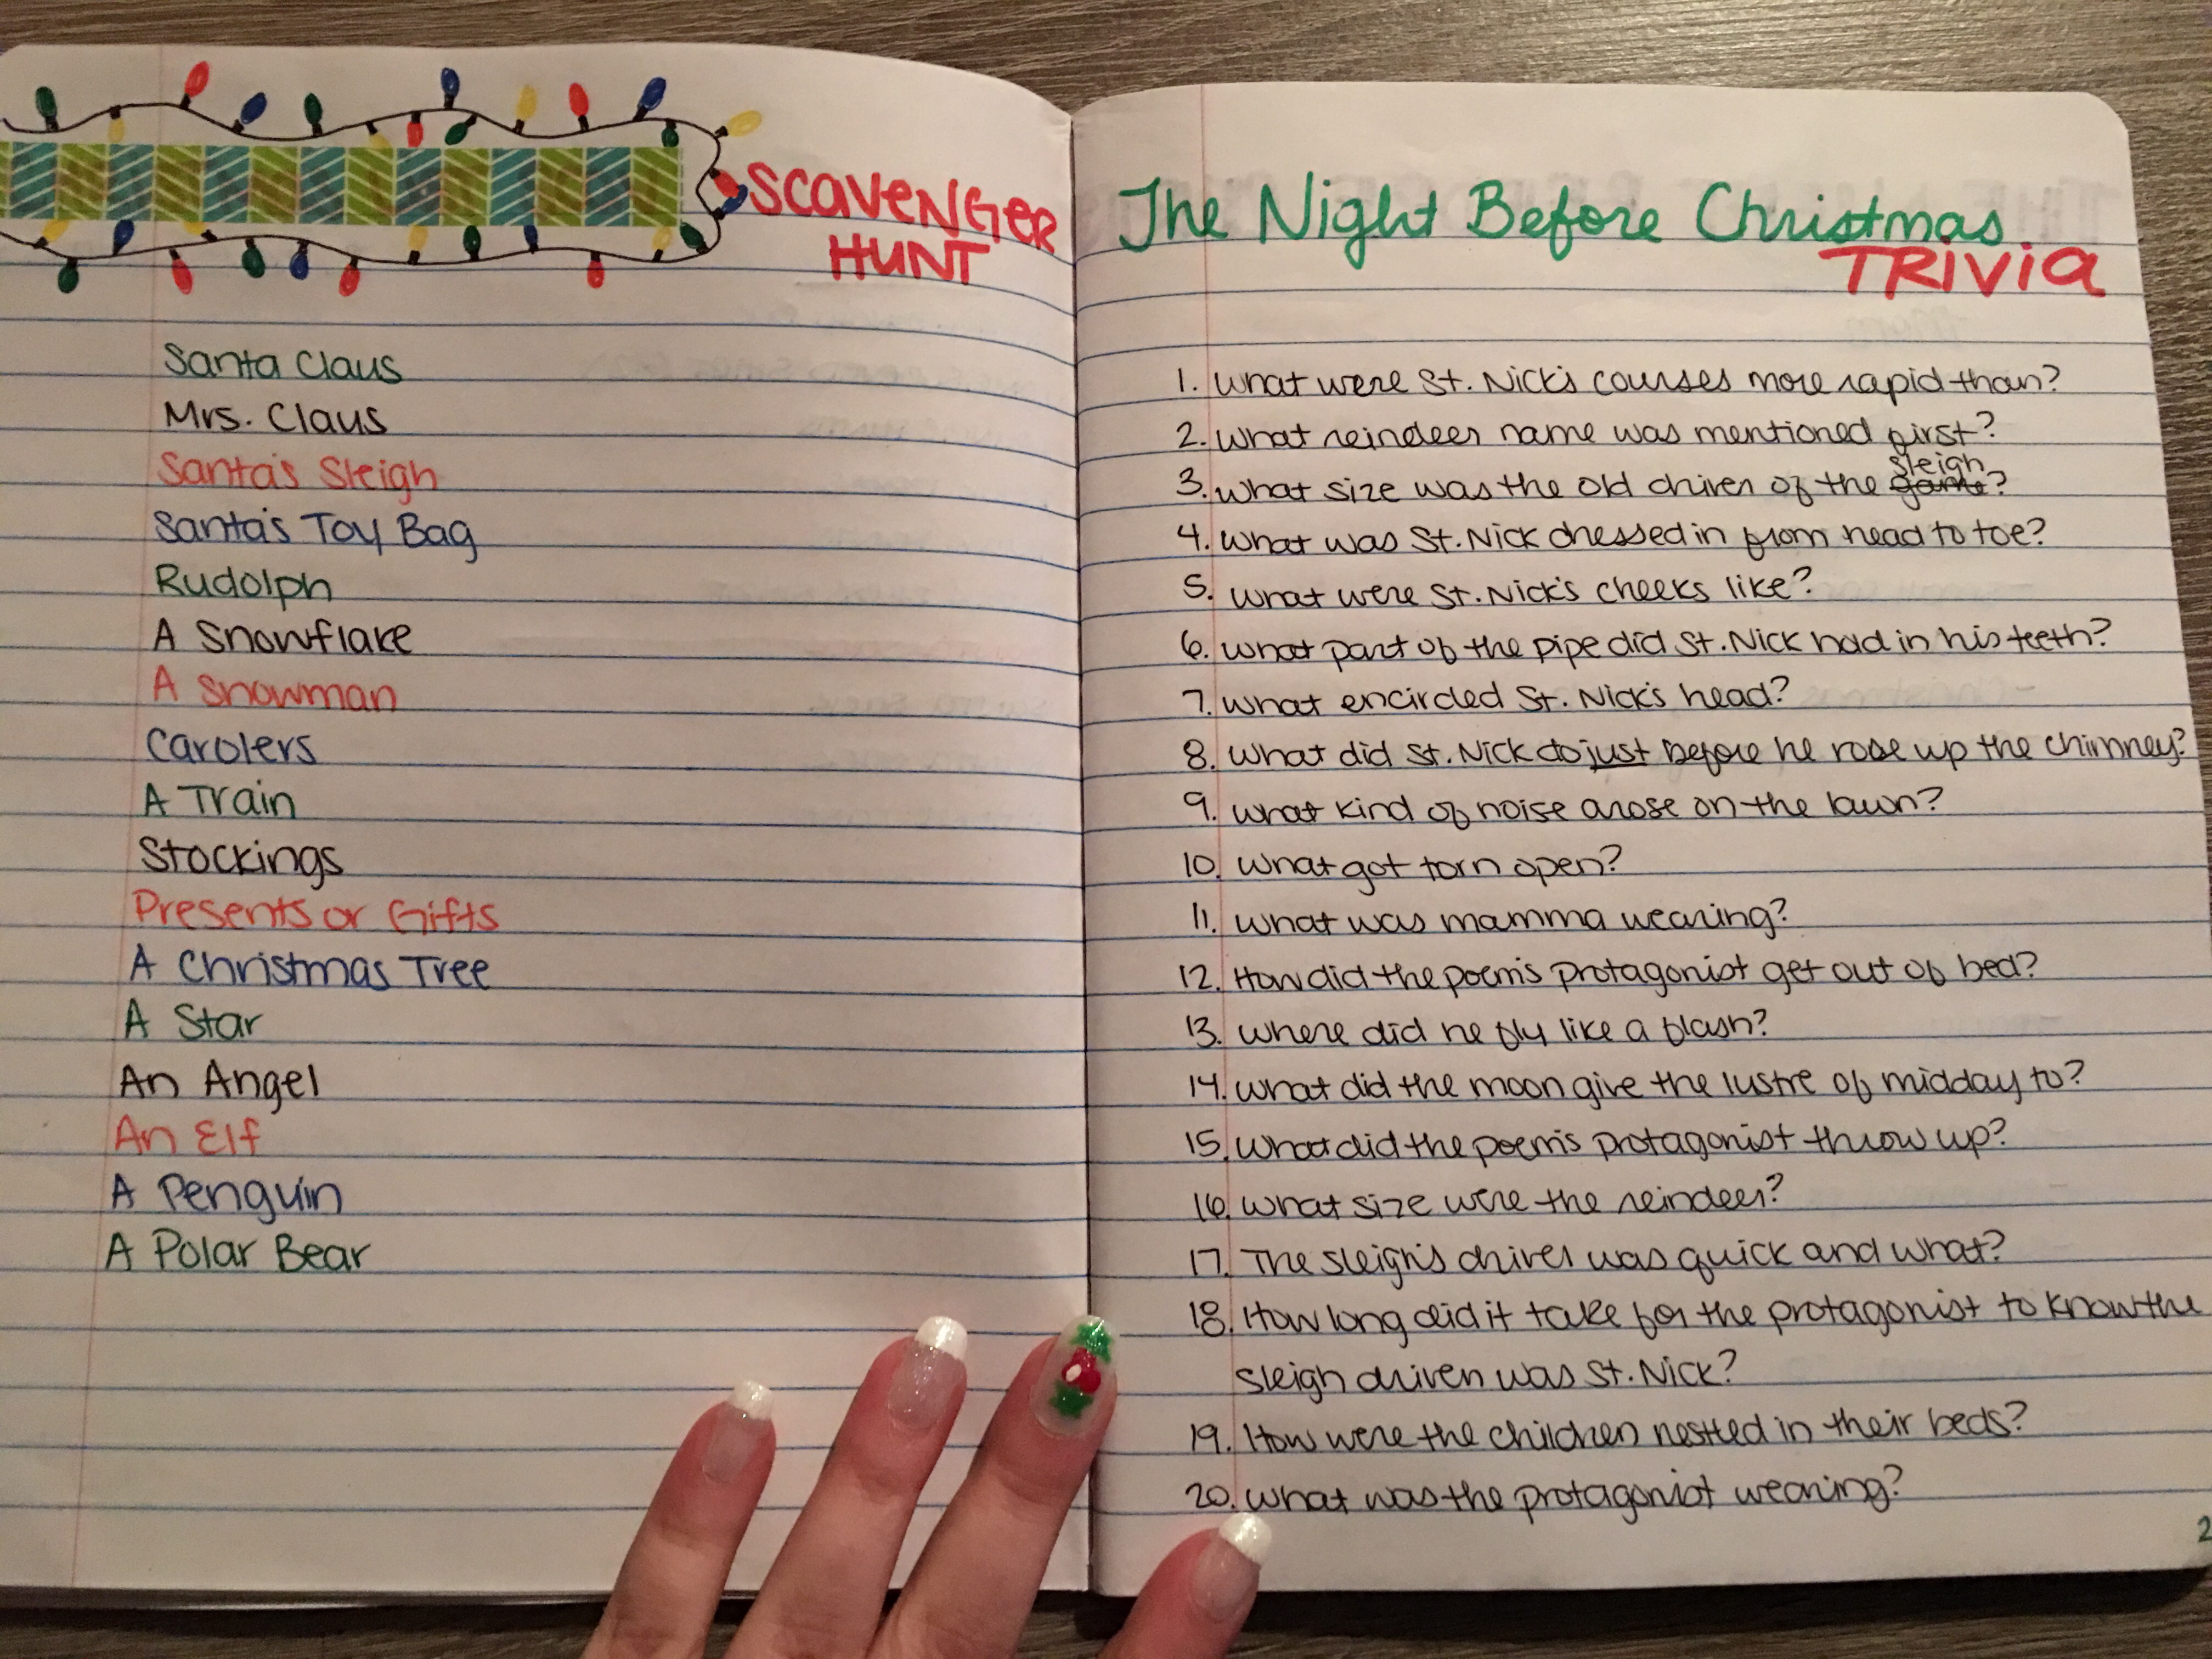 SCAVENGER
HUNT
Santa Claus
Mrs. Claus
Santa's Sleigh
Santa's Toy Bag
Rudolph
A Snowflake
A Snowman
Carolers
A Train
Stockings
Presents or Gifts
A Christmas Tree
A Star
An Angel
An Elf
A Penguin
A Polar Bear
The Night Before Christmas
TRIVIA
1. What were St. Nick's courses more rapid than?
2. What reindeer name was mentioned first?
sleigh
3. What size was the old driver of the game?
4. What was St. Nick dressed in from head to toe?
5. What were St. Nick's cheeks like?
6. What part of the pipe did St. Nick had in his teeth?
7. What encircled St. Nick's head?
8. What did St. Nick do just before he rose up the chimney?
9. What kind of noise arose on the lawn?
10. What got torn open?
11. What was mamma wearing?
12. How did the poem's protagonist get out of bed?
13. Where did he fly like a flash?
14. What did the moon give the lustre of midday to?
15. What did the poem's protagonist throw up?
16. What size were the reindeer?
17. The sleigh's driver was quick and what?
18. How long did it take for the protagonist to know the
sleigh driver was St. Nick?
19. How were the children nestled in their beds?
20. What was the protagonist wearing?
2